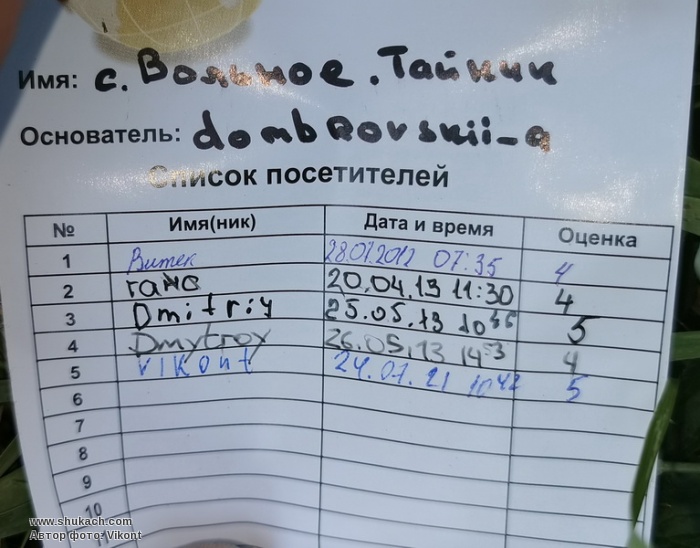 Имя: с. Вольное. Тайник
Основатель: dombrovskii_a
Список посетителей
№ Имя(ник) Дата и время Оценка
1 Витек 28.07.2012 07:35 4
2 гамо 20.04.13 11:30 4
3 Dmitriy 25.05.13 10 5
4 Dmytroy 26.05.13 14:53 4
5 VIKont 24.07.21 10 42 5
6
7
8
9
10
www.shukach.com
Автор фото: Vikont